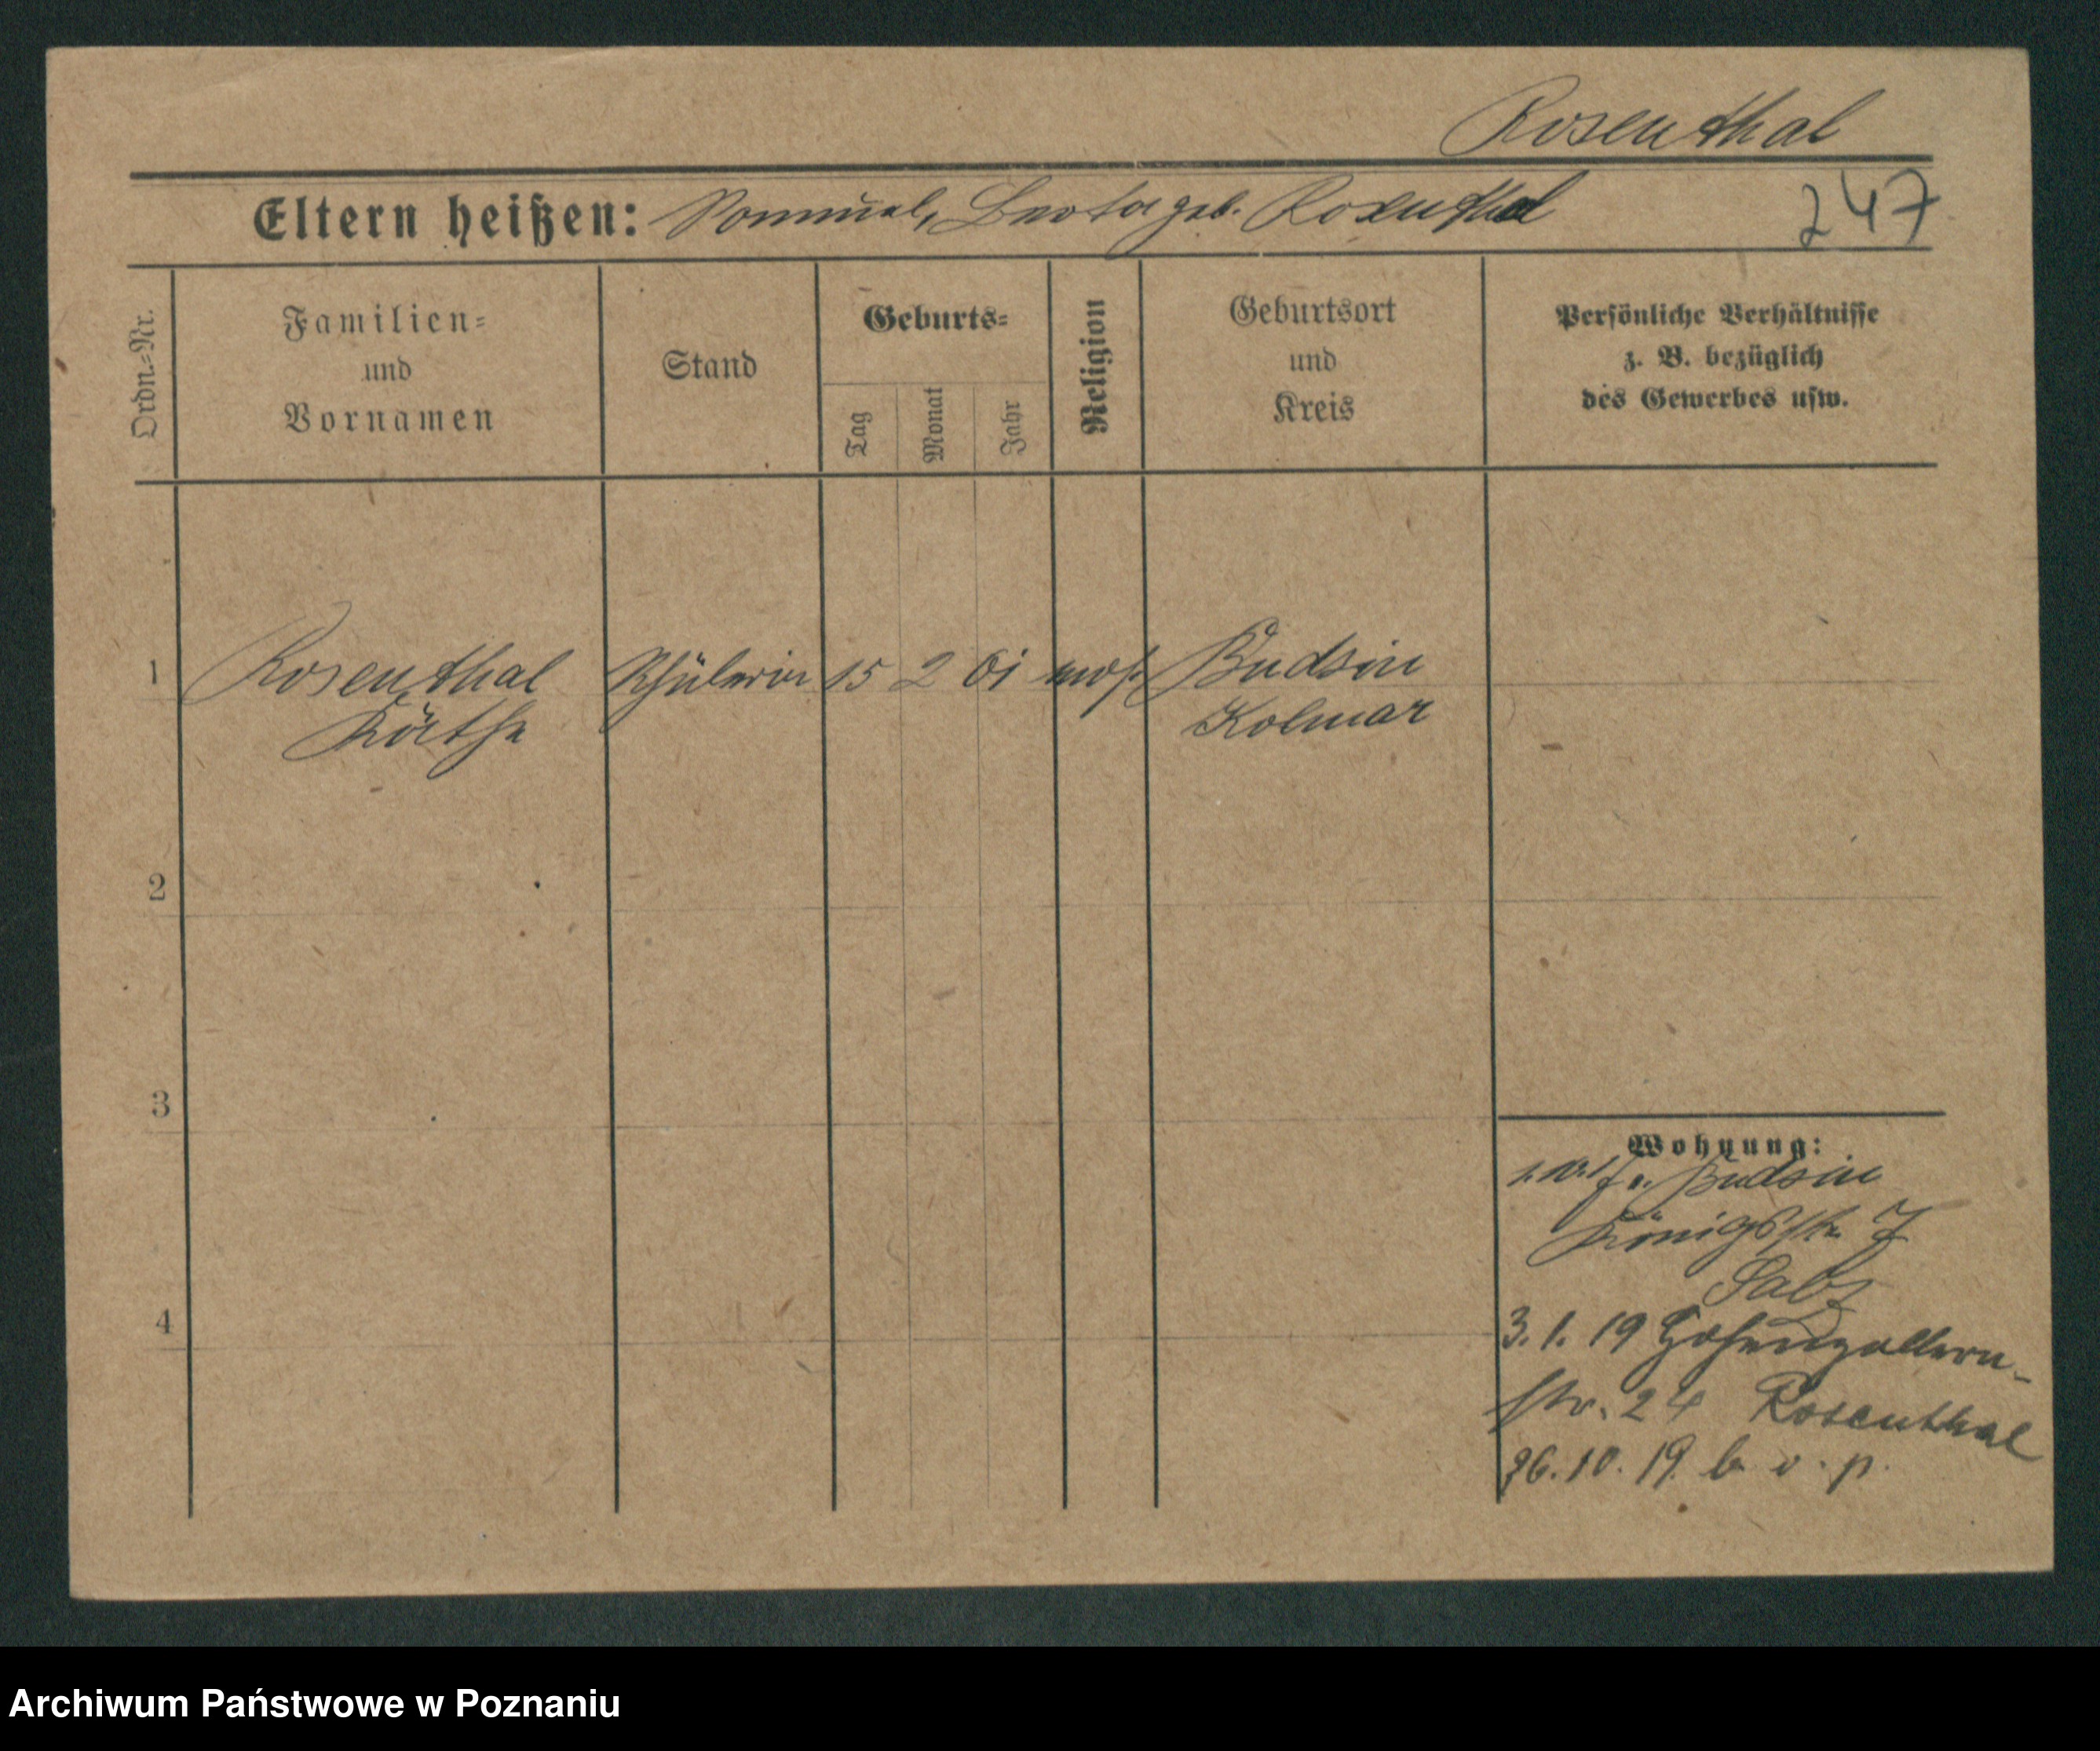 Rosenthal
Eltern heißen: Samuel, Berta geb. Rosenthal 247
Ordn.-Nr.
Familien-
und
Vornamen
Stand
Geburts-
Tag
Monat
Jahr
Religion
Geburtsort
und
Kreis
Persönliche Verhältnisse
z. B. bezüglich
des Gewerbes usw.
1 Rosenthal Schülerin 15 2 01 mos. Budsin
Käthe Kolmar
2
3
4
Wohnung:
v. Budsin
Königsstr. 7
3. 1. 19 Hohenzollern-
str. 24 Rosenthal
26. 10. 19. b. v. p.
Archiwum Państwowe w Poznaniu